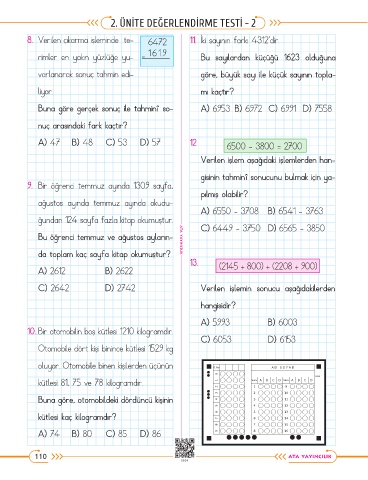 2. ÜNİTE DEĞERLENDİRME TESTİ - 2
8. Verilen çıkarma işleminde te-
rimler en yakın yüzlüğe yu-
varlanarak sonuç tahmin edi-
liyor.
6472
1619
Buna göre gerçek sonuç ile tahminî so-
nuç arasındaki fark kaçtır?
A) 47 B) 48 C) 53 D) 57
9. Bir öğrenci temmuz ayında 1309 sayfa,
ağustos ayında temmuz ayında okudu-
ğundan 124 sayfa fazla kitap okumuştur.
Bu öğrenci temmuz ve ağustos ayların-
da toplam kaç sayfa kitap okumuştur?
A) 2612 B) 2622
C) 2642 D) 2742
10. Bir otomobilin boş kütlesi 1210 kilogramdır.
Otomobile dört kişi binince kütlesi 1529 kg
oluyor. Otomobile binen kişilerden üçünün
kütlesi 81, 75 ve 78 kilogramdır.
Buna göre, otomobildeki dördüncü kişinin
kütlesi kaç kilogramdır?
A) 74 B) 80 C) 85 D) 86
11. İki sayının farkı 4312'dir.
Bu sayılardan küçüğü 1623 olduğuna
göre, büyük sayı ile küçük sayının topla-
mı kaçtır?
A) 6953 B) 6972 C) 6991 D) 7558
12. 6500 - 3800 = 2700
Verilen işlem aşağıdaki işlemlerden han-
gisinin tahminî sonucunu bulmak için ya-
pılmış olabilir?
A) 6550 - 3708 B) 6541 - 3763
C) 6449 - 3750 D) 6565 - 3850
13. (2145 + 800) + (2208 + 900)
Verilen işlemin sonucu aşağıdakilerden
hangisidir?
A) 5993 B) 6003
C) 6053 D) 6153
AD SOYAD
110
ATA YAYINCILIK